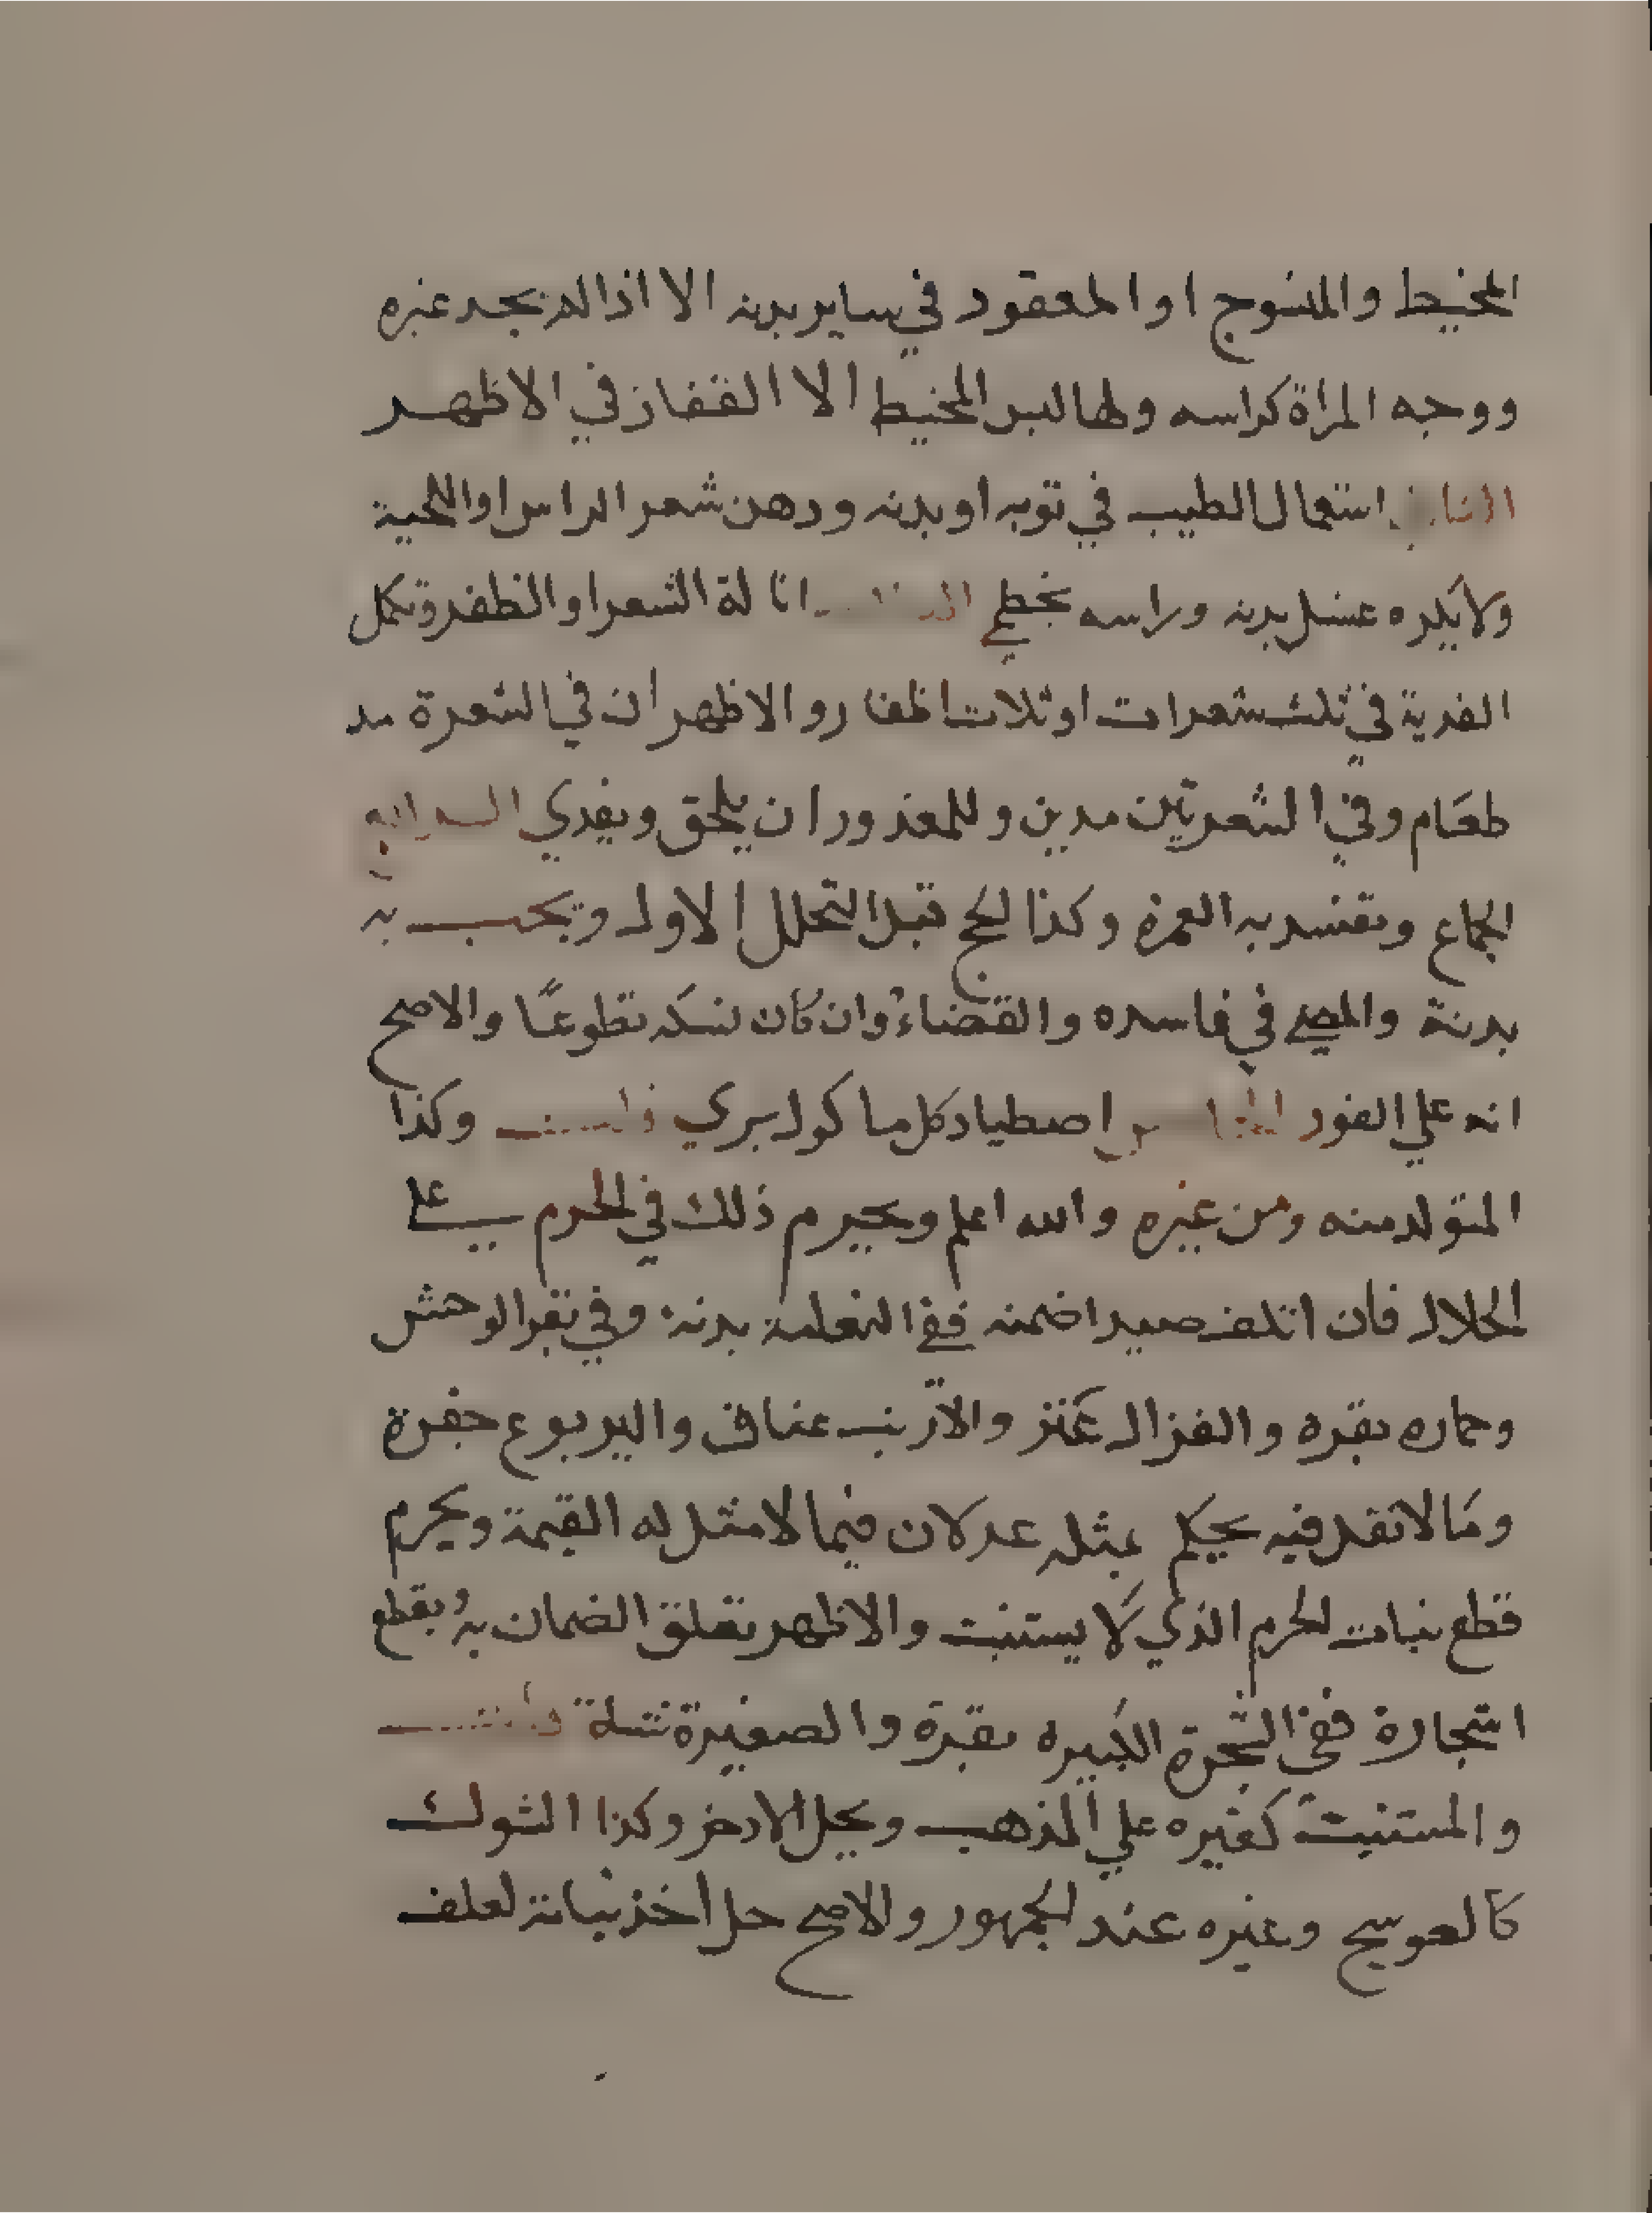 المخيط والمنسوج او المعقود في ساير بدنه الا اذا لم يجد غيره
ووجه المراة كراسه ولها لبس المخيط الا القفاز في الاظهر
الثاني استعمال الطيب في ثوبه او بدنه ودهن شعر الراس او اللحية
ولا يكره غسل بدنه وراسه بخطمي ازالة الشعر او الظفر وتكمل
الفدية في ثلث شعرات او ثلاث اظفار والاظهر ان في الشعرة مد
طعام وفي الشعرتين مدين وللمعذور ان يحلق ويفدي الرابع
الجماع وتفسد به العمرة وكذا الحج قبل التحلل الاول ويجب به
بدنة والمضي في فاسده والقضاء وان كان نسكه تطوعًا والاصح
انه علي الفور الخامس اصطياد كل ماكول بري قلت وكذا
المتولد منه ومن غيره والله اعلم ويحرم ذلك في الحرم علي
الحلال فان اتلف صيدا ضمنه ففي النعامة بدنة وفي بقر الوحش
وحماره بقره والغزال عنز والارنب عناق واليربوع جفرة
وما لا نقل فيه يحكم بمثله عدلان فيما لا مثل له القيمة ويحرم
قطع نبات الحرم الذي لا يستنبت والاظهر تعلق الضمان به وبقطع
اشجاره ففي الشجرة الكبيره بقرة والصغيرة شاة قلت
والمستنبت كغيره علي المذهب ويحل الاذخر وكذا الشوك
كالعوسج وغيره عند الجمهور والاصح حل اخذ نباته لعلف